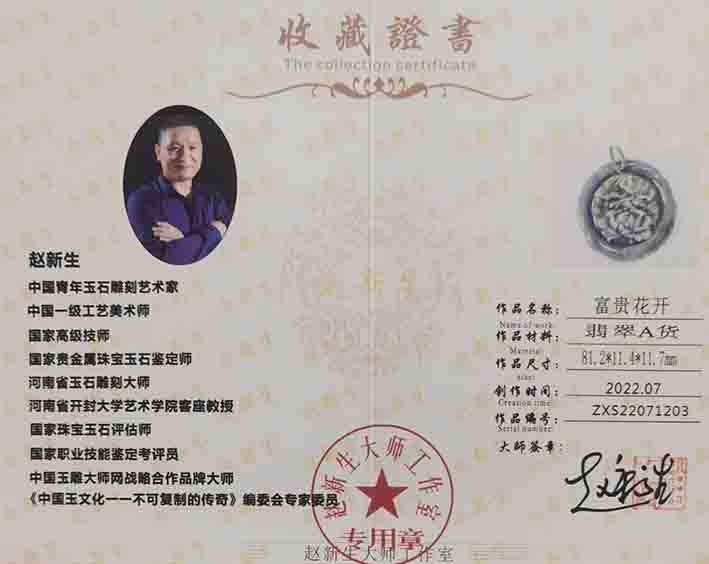 收藏證書
The collection certificate
赵新生
中国青年玉石雕刻艺术家
中国一级工艺美术师
国家高级技师
国家贵金属珠宝玉石鉴定师
河南省玉石雕刻大师
河南省开封大学艺术学院客座教授
国家珠宝玉石评估师
国家职业技能鉴定考评员
中国玉雕大师网战略合作品牌大师
《中国玉文化一一不可复制的传奇》编委会专家委员
作品名称： 富贵花开
Name of work:
作品材料： 翡翠A货
Material:
作品尺寸： 81.2*11.4*11.7mm
size:
创作时间： 2022.07
Creation time:
作品编号： ZXS22071203
Serial number:
大师签章：
赵新生
赵新生大师工作室
专用章
赵新生大师工作室